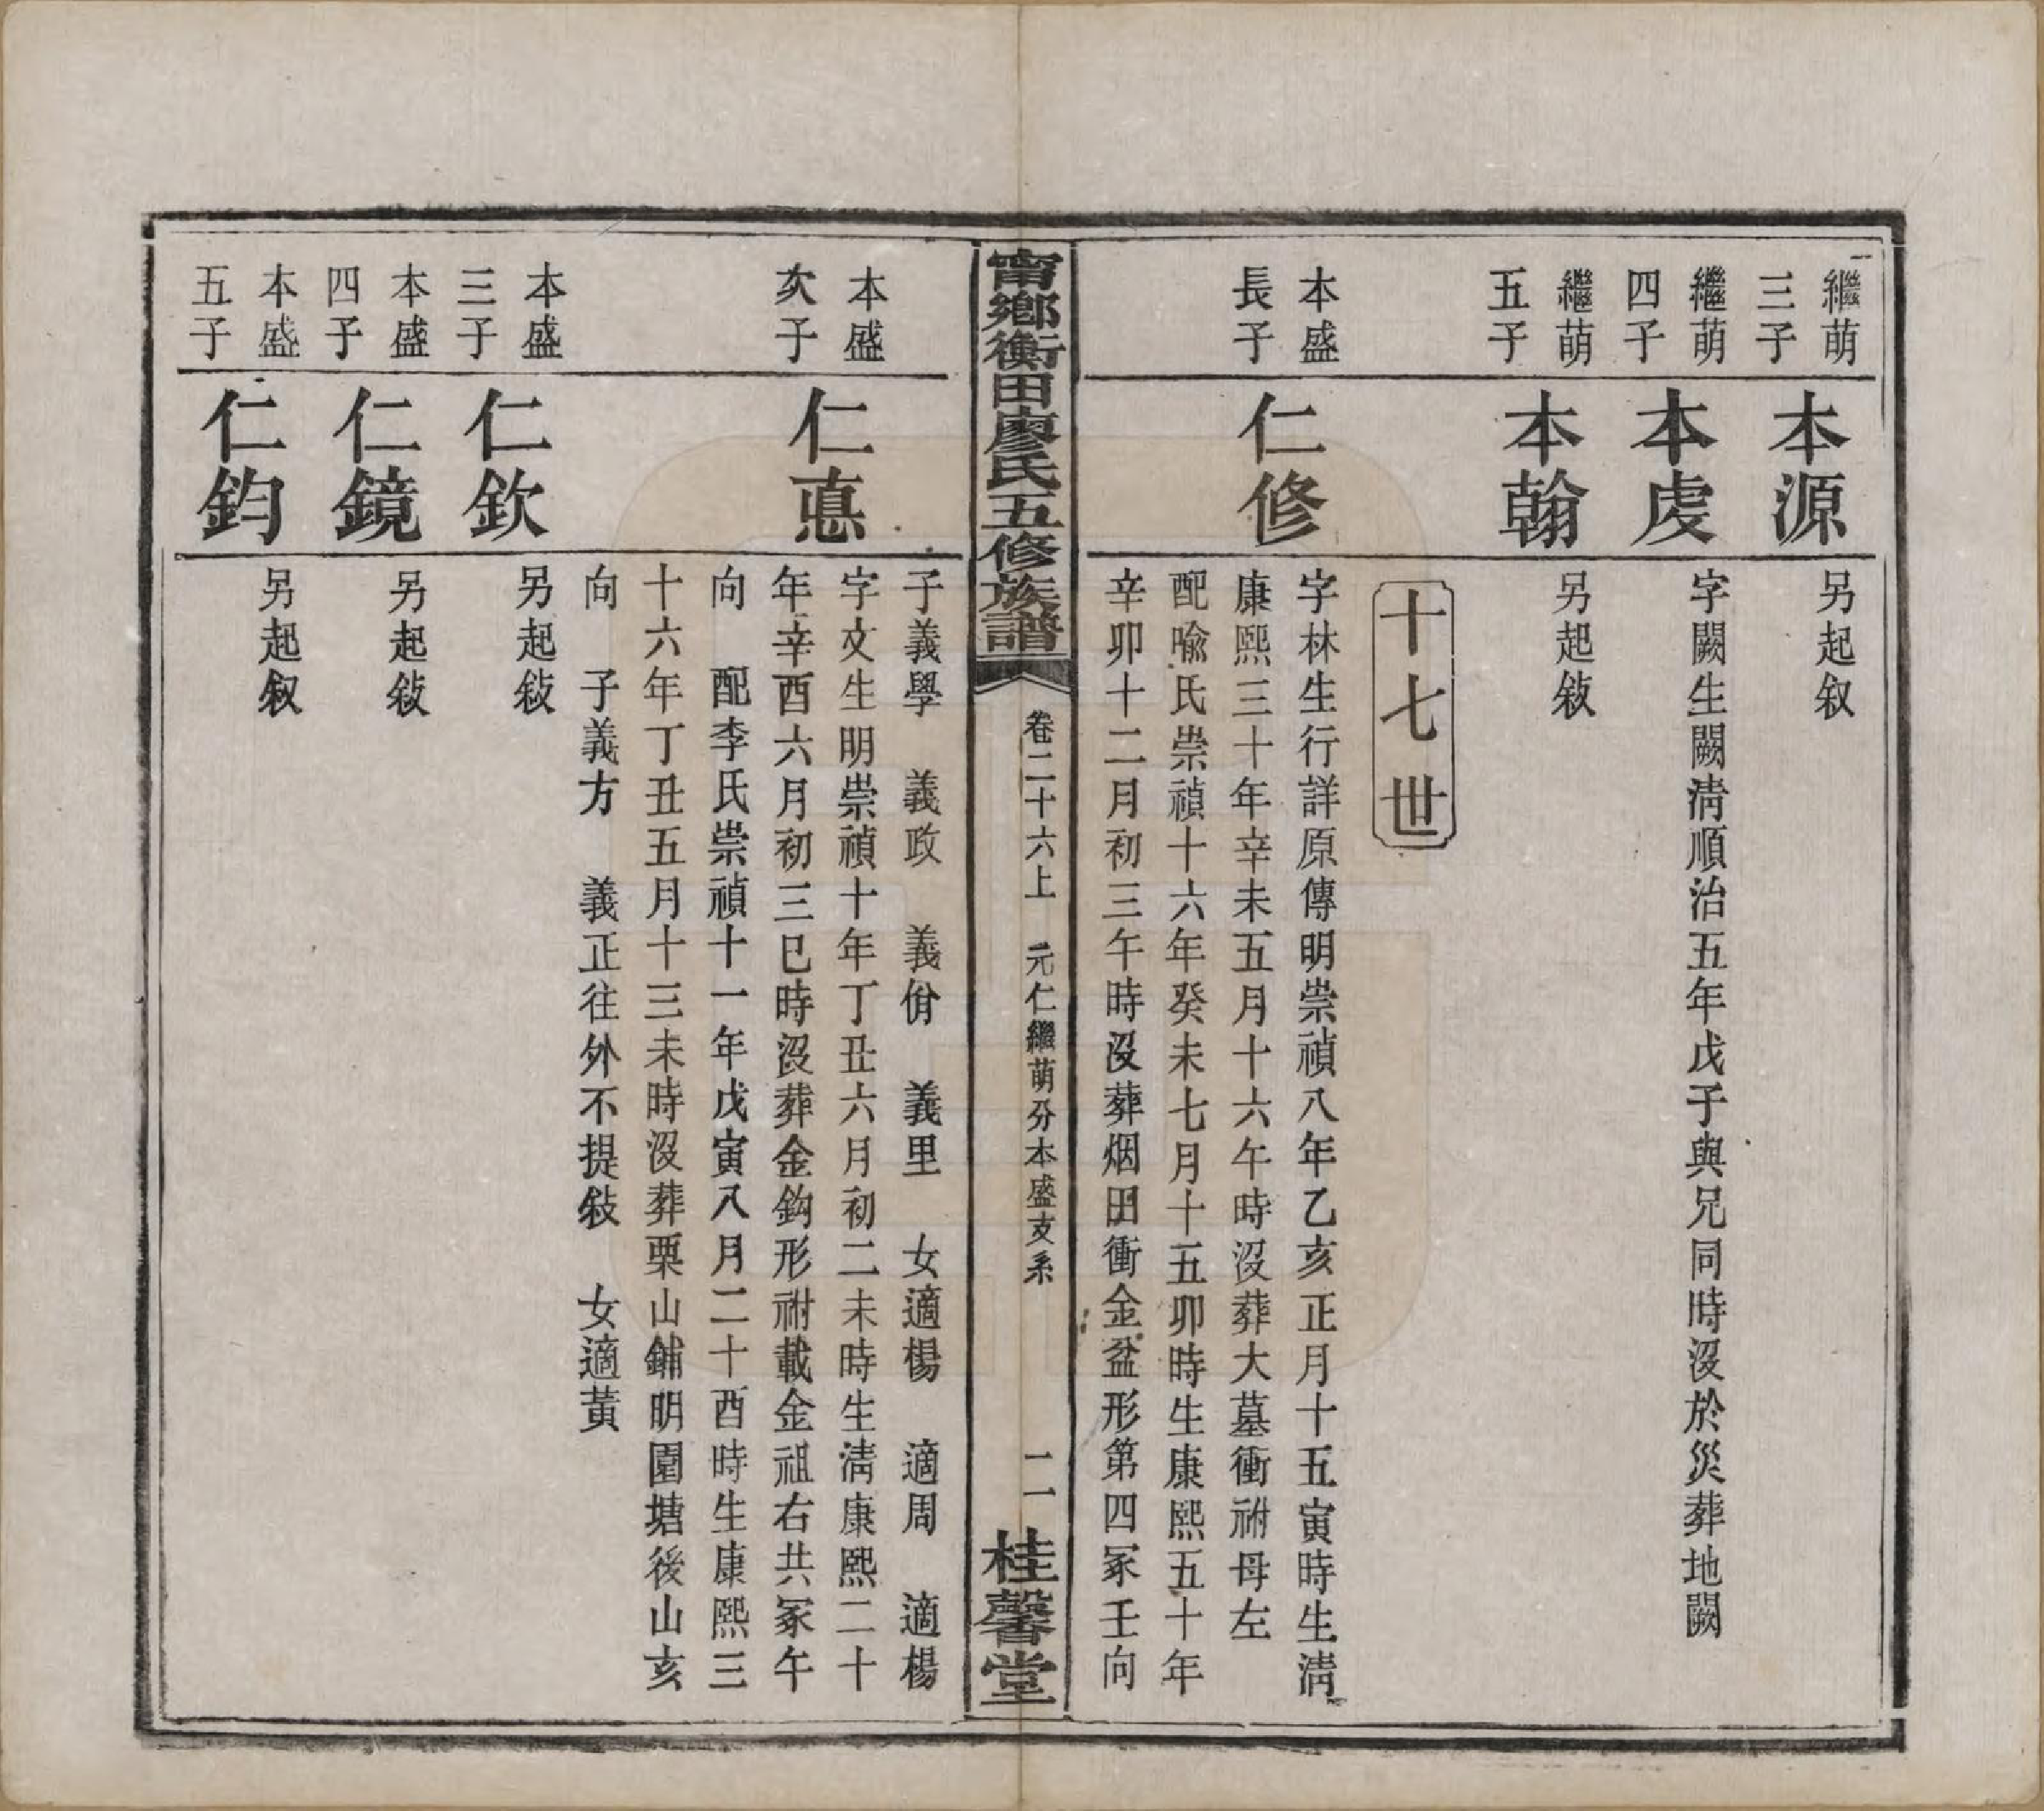 繼萌
三子
本源
另起叙
繼萌
四子
本虔
字闕生闕淸順治五年戊子與兄同時沒於災葬地闕
繼萌
五子
本翰
另起敍
十七世
本盛
長子
仁修
字林生行詳原傳明崇禎八年乙亥正月十五寅時生淸
康熙三十年辛未五月十六午時沒葬大墓衝祔母左
配喩氏崇禎十六年癸未七月十五卯時生康熙五十年
辛卯十二月初三午時沒葬烟田衝金盆形第四冢壬向
甯鄉衡田廖氏五修族譜
卷二十六上 元仁繼萌分本盛支系
二一
桂馨堂
子義學 義政 義佾 義里 女適楊 適周 適楊
本盛
次子
仁悳
字文生明崇禎十年丁丑六月初二未時生淸康熙二十
年辛酉六月初三巳時沒葬金鈎形祔載金祖右共冢午
向 配李氏崇禎十一年戊寅八月二十酉時生康熙三
十六年丁丑五月十三未時沒葬栗山鋪明園塘後山亥
向 子義方 義正往外不提敍 女適黃
本盛
三子
仁欽
另起敍
本盛
四子
仁鏡
另起敍
本盛
五子
仁鈞
另起叙